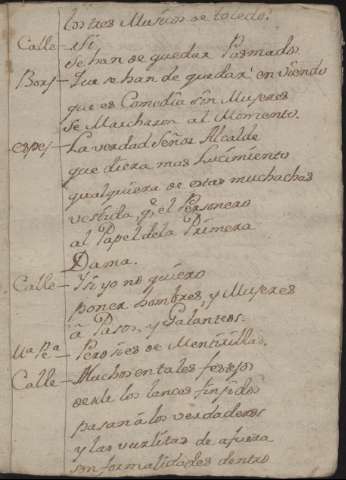 los tres Muñicos de toledo.
Calle - Si
se han de quedar Pasmados
Borj - Que se han de quedar? en viendo
que es Comedia sin Mujeres
se Marcharan al Momento.
espej - La verdad Señor Alcalde
que diera mas lucimiento
qualquiera de estas muchachas
vestida, q.e el Personero
al Papel de la Primera
Dama.
Calle - Y si yo no quiero
poner hombres, y Mujeres
â Pasos, y Galanteos.
M.a Pe.a - Pero si es de Mentirillas.
Calle - Muchos en tales festejos
desde los lances finjidos
pasan â los verdaderos
y las vueltitas de afuera
son formalidades dentro